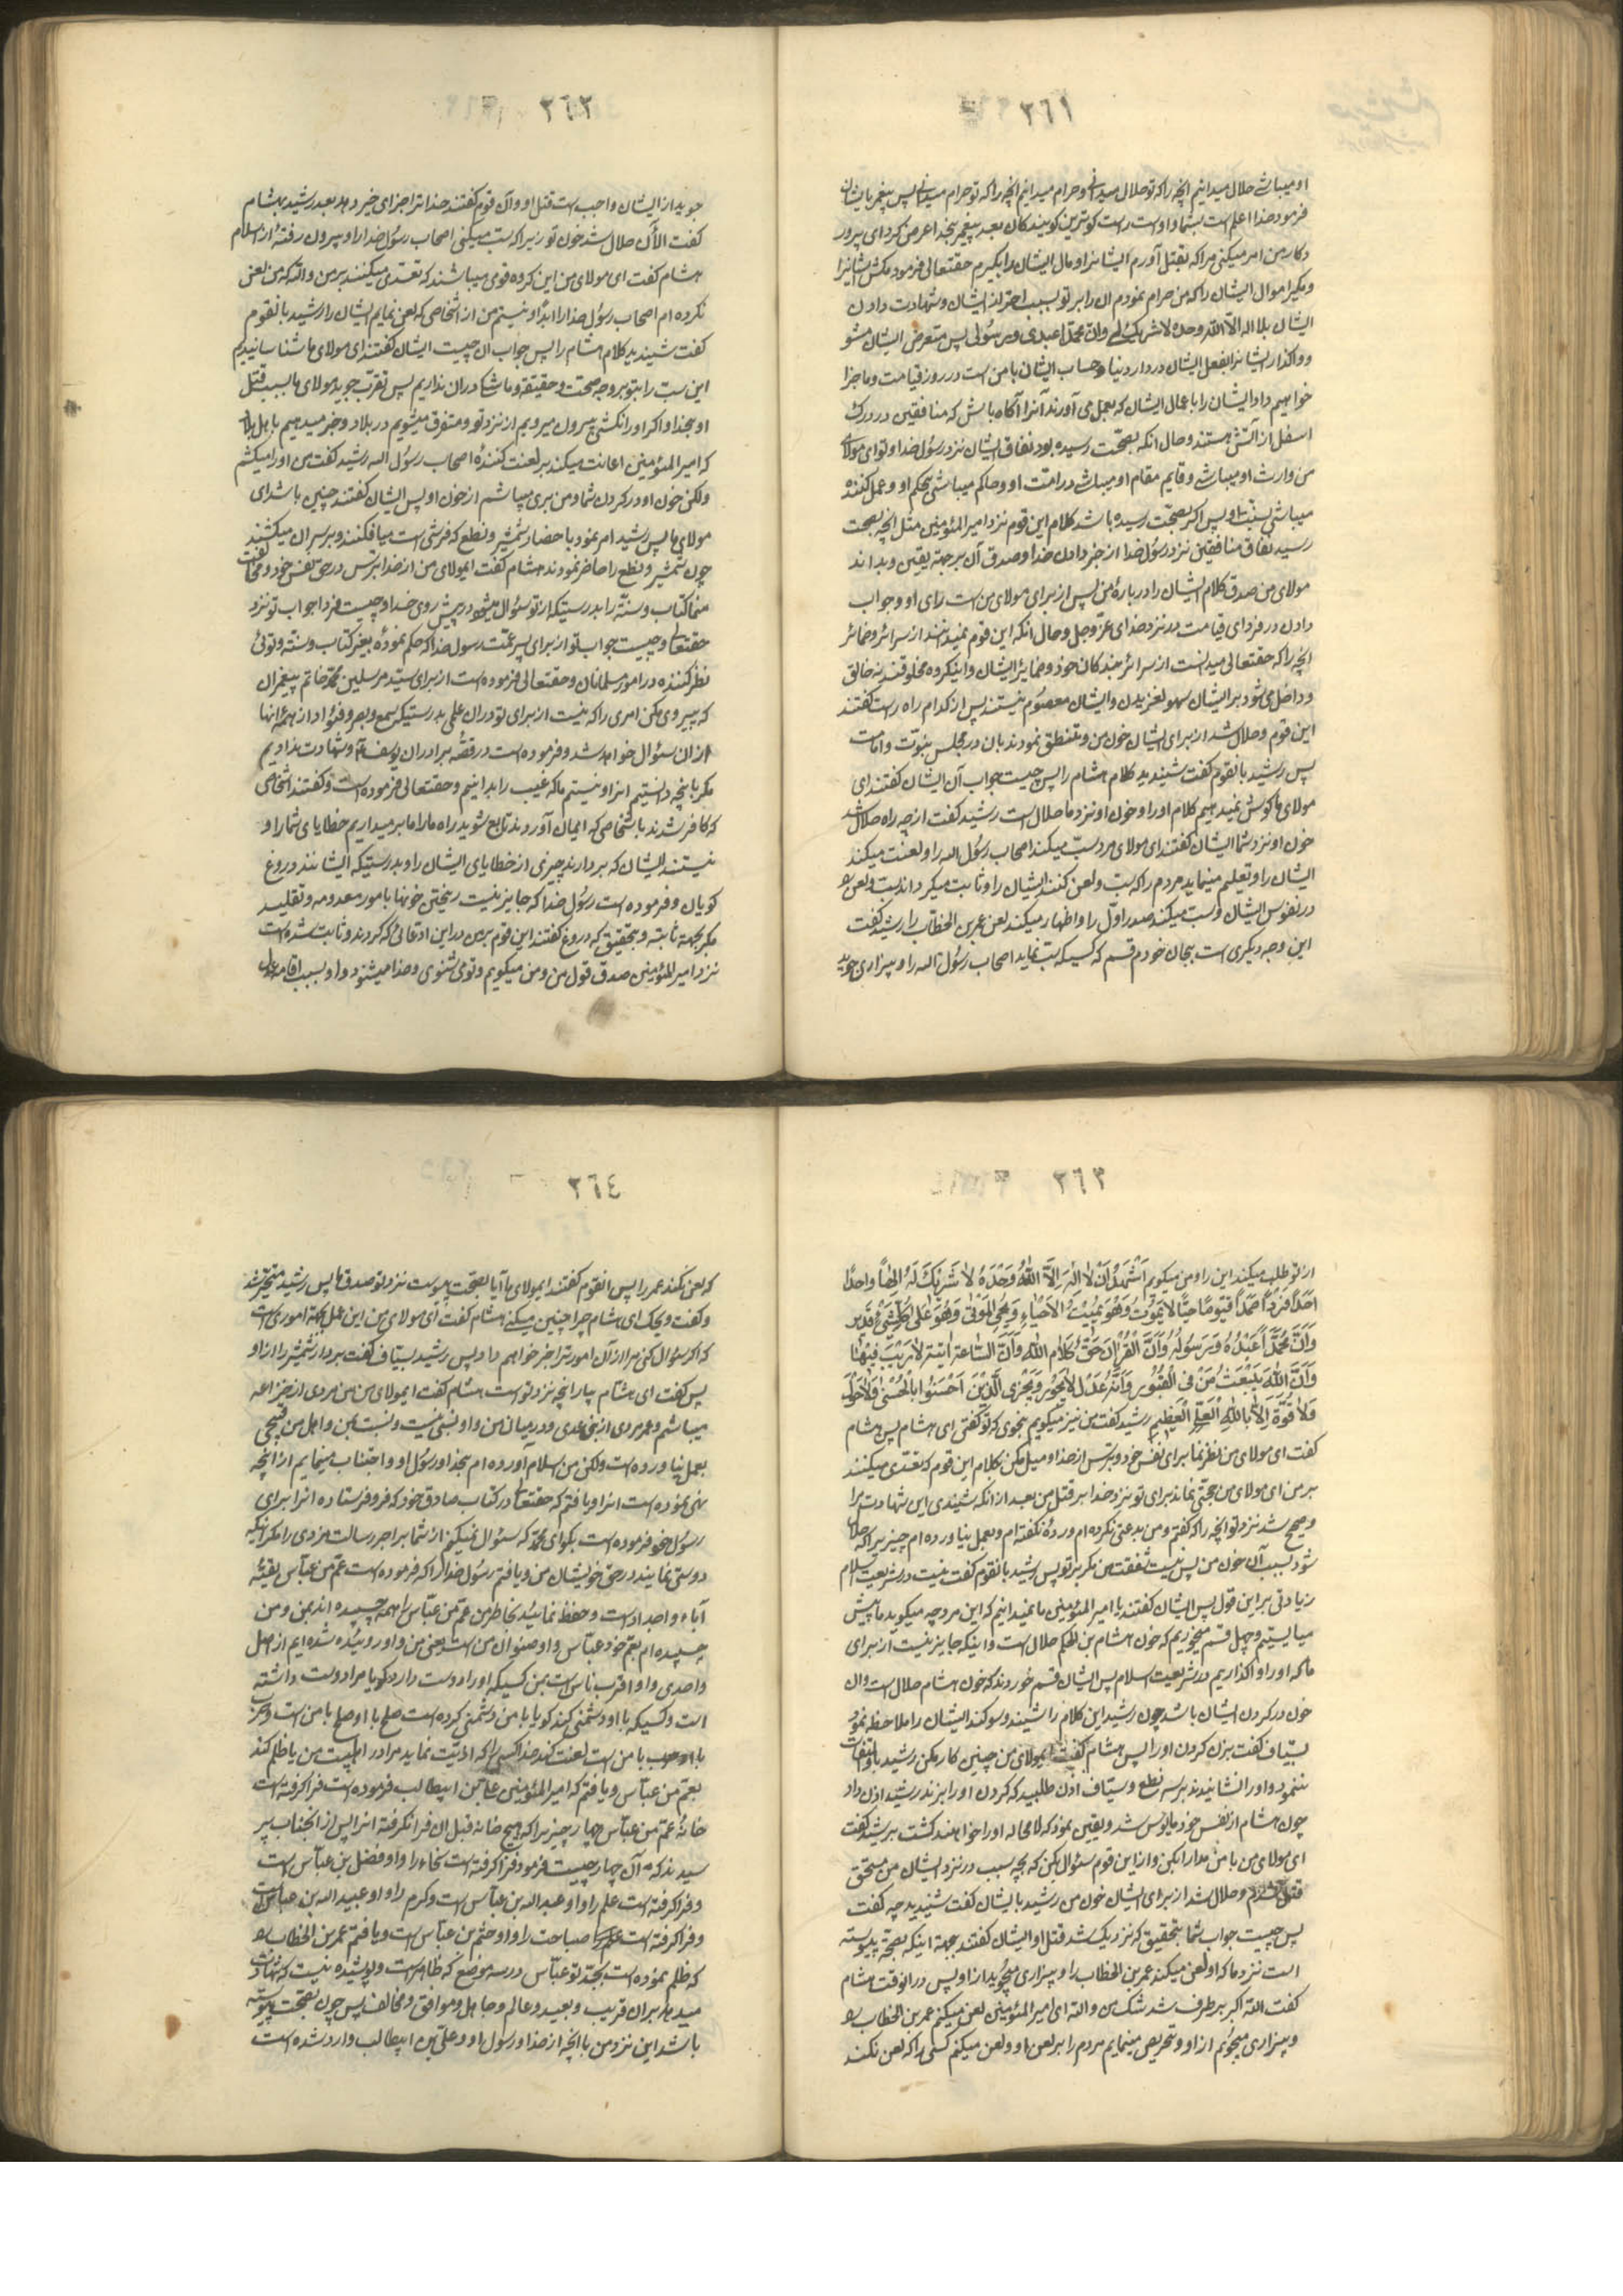 ٣٦١
او میباشے حلال میدانیم انچه را که تو حلال میدانے و حرام میدانیم انچه را که تو حرام میدانے پس پیغمبر بایشان
فرمود خدا اعلم است بشما و او است راست کوترین کویندکان بعد پیغمبر بخدا عرض کرد ای پرور
دکار من امر میکنی مرا که بقتل آورم ایشانرا و مال ایشان را بکیرم حقتعالی فرمود مکش ایشانرا
و مکیر اموال ایشان را که من حرام نمودم ان را بر تو بسبب احتراز ایشان و شهادت دادن
ایشان بلا اله الا الله وحده لا شریک له وان محمدا عبدی ورسولی پس متعرض ایشان مشو
و واکذار ایشانرا بفعل ایشان در دار دنیا و حساب ایشان با من است در روز قیامت و ما جزا
خواهیم داد ایشان را با عمال ایشان که بعمل می آورند آنرا آکاه باش که منافقین در درک
اسفل از آتش هستند و حال انکه بصحّت رسیده بود نفاق ایشان نزد رسول خدا و تو ای مولای
من وارث او میباشے و قایم مقام او میباشے در امّت او و حاکم میباشی بحکم او و عمل کننده
میباشی بسنّت او پس اکر بصحّت رسیده باشد کلام این قوم نزد امیر المؤمنین مثل انچه بصحت
رسید نفاق منافقین نزد رسول خدا از خبر دادن خدا و صدق آن بر جهة یقین و بداند
مولای من صدق کلام ایشان را در بارهٔ من پس از برای مولای من است رای او و جواب
دادن در فردای قیامت بد نزد خدای عزّ و جل و حال انکه این قوم نمیدانند از سرائر و ضمائر
انچه را که حقتعالی میدانست از سرائر بندکان خود و ضمایر ایشان و اینکروه مخلوقند نه خالق
و داخل می شود بر ایشان سهو و لغزیدن و ایشان معصوم نیستند پس از کدام راه راست کفتند
این قوم و حلال شد از برای ایشان خون من و منطق نمودند بان در مجلس نبوّت و امامت
پس رشید بانقوم کفت شنیدید کلام هشام را پس چیست جواب آن ایشان کفتند ای
مولای ما کوش نمیدهیم کلام او را و خون او نزد ما حلال است رشید کفت از چه راه حلال شد
خون او نزد شما ایشان کفتند ای مولای ما و سبّ میکند اصحاب رسول الله را و لعنت میکند
ایشان را و تعلیم مینماید مردم را که سبّ و لعن کنند ایشان را و ثابت میکرداند سبّ و لعن را
در نفوس ایشان و سبّ میکند صدر اوّل را و اظهار میکند لعن عمر بن الخطاب را رشید کفت
این وجه دیکری است بجان خودم قسم که کسیکه سبّ نماید اصحاب رسول الله را و بیزاری جوید
٣٦٢
جوید از ایشان واجب است قتل او و آن قوم کفتند خدا ترا جزای خیر دهد بعد رشید بهشام
کفت الآن حلال شد خون تو زیرا که سبّ میکنی اصحاب رسول خدا را و بیرون رفتهٔ از اسلام
هشام کفت ای مولای من این کروه قومی میباشند که تعدّی میکنند بر من و الله که من لعن
نکرده ام اصحاب رسول خدا را ابدًا و نیستم من از اشخاصی که لعن نمایم ایشان را رشید بانقوم
کفت شنیدید کلام هشام را پس جواب آن چیست ایشان کفتند ای مولای ما شناسانیدیم
این سبّ را بتو بر وجه صحّت و حقیقة و ما شک در ان نداریم پس تقرّب جوید مولای ما بسبب قتل
او بخدا و اکر او را نکشتی بیرون میرویم از نزد تو و متفرق میشویم در بلاد و خبر میدهیم با هل بلاد
که امیر المؤمنین اعانت میکند بر لعنت کننده اصحاب رسول الله رشید کفت من او را میکشم
ولکن خون او در کردن شما و من بری میباشم از خون او پس ایشان کفتند چنین باشد ای
مولای ما پس رشید امر نمود باحضار شمشیر و نطع که فرشی است میافکنند و بر سر ان میکشند
چون شمشیر و نطع را حاضر نمودند هشام کفت ایمولای من از خدا بترس در حق نفس خود و مخالفت
منما کتاب و سنّة را بدرستیکه از تو سؤال میشود در پیش روی خدا و چیست فردا جواب تو نزد
حقتعالی و چیست جواب تو از برای پسر عمّت رسول خدا که حکم نمودهٔ بغیر کتاب و سنّة و توئی
نظر کننده در امور مسلمانان و حقتعالی فرموده است از برای سیّد مرسلین محمّد خاتم پیغمبران
که پیروی مکن امری را که نیست از برای تو در ان علمی بدرستیکه سمع و بصر و فؤاد از همهٔ انها
از ان سؤال خواهد شد و فرموده است در قصّهٔ برادران یوسف که و شهادت ندادیم
مکر بانچه دانستیم انرا و نیستیم ما که غیب را بدانیم و حقتعالی فرموده است و کفتند اشخاصی
که کافر شدند باشخاصی که ایمان آوردند تابع شوید راه ما را ما بر میداریم خطایای شما را و
نیستند ایشان که بردارند چیزی از خطایای ایشان را و بدرستیکه ایشانند دروغ
کویان و فرموده است رسول خدا که جایز نیست ریختن خونها بامور معدومه و تقلید
مکر بجهة ثابته و بتحقیق که دروغ کفتند این قوم بر من در این ادعائی که کردند و ثابت شده است
نزد امیر المؤمنین صدق قول من و من میکویم و تو می شنوی و خدا میشنود و او بسبب اقامه عدل
٣٦٣
از تو طلب میکند این را و من میکویم اَشْهَدُ اَنْ لا اِلٰهَ اِلاَّ اللّٰهُ وَحْدَهُ لا شَریٖكَ لَهُ اِلٰهًا واحِدًا
اَحَدًا فَرْدًا صَمَدًا قَیُّومًا حَیًّا لا یَمُوتُ وَهُوَ یُمیٖتُ الاَحْیاءِ وَیُحْیِ الْمَوْتٰی وَهُوَ عَلٰی کُلِّ شَیْءٍ قَدیٖر
وَاَنَّ مُحَمَّدًا عَبْدُهُ وَرَسُولُهُ وَاَنَّ الْقُرْاٰنَ حَقٌّ کَلامُ اللّٰهِ وَاَنَّ السّاعَةَ اٰتِیَةٌ لا رَیْبَ فیٖها
وَاَنَّ اللّٰهَ یَبْعَثُ مَنْ فِی الْقُبُورِ وَاَنَّهُ عَدْلٌ لا یَجُورُ وَیَجْزِی الَّذیٖنَ اَحْسَنُوا بِالْحُسْنٰی وَلا حَوْلَ
وَلا قُوَّةَ اِلاّ بِاللّٰهِ الْعَلِیِّ الْعَظیٖمِ رشید کفت من نیز میکویم بنحوی که تو کفتی ای هشام پس هشام
کفت ای مولای من نظر نما برای نفس خود و بترس از خدا و میل مکن بکلام این قوم که تعدّی میکنند
بر من ای مولای من حجّتی نماند برای تو نزد خدا بر قتل من بعد از انکه شنیدی این شهادت مرا
و صحیح شد نزد تو انچه را که کفتم و من بدعتی نکرده ام و ردّهٔ نکفته ام و بعمل نیاورده ام چیزی را که حلال
شود بسبب آن خون من پس نیست شفقت من مکر بر تو پس رشید بانقوم کفت نیست در شریعت اسلام
زیادتی بر این قول پس ایشان کفتند یا امیر المؤمنین ما نمیدانیم که این مرد چه میکوید ما پیش
میایستیم و چهل قسم میخوریم که خون هشام بن الحکم حلال است و اینکه جایز نیست از برای
ما که او را واکذاریم در شریعت اسلام پس ایشان قسم خوردند که خون هشام حلال است و ان
خون در کردن ایشان باشد چون رشید این کلام را شنید و سوکند ایشان را ملاحظه نمود
بسیّاف کفت بزن کردن او را پس هشام کفت ایمولای من چنین کار مکن رشید باو التفات
ننمود و او را نشانیدند بر سر نطع و سیّاف اذن طلبید که کردن او را بزند رشید اذن داد
چون هشام از نفس خود مایوس شد و یقین نمود که لا محاله او را خواهند کشت برشید کفت
ای مولای من با من مدارا بکن و از این قوم سئوال بکن که بچه سبب در نزد ایشان من مستحق
قتل شدم و حلال شد از برای ایشان خون من رشید بایشان کفت شنیدید چه کفت
پس چیست جواب شما بتحقیق که نزدیک شد قتل او ایشان کفتند بجهة اینکه بصحّة پیوسته
است نزد ما که او لعن میکند عمر بن الخطاب را و بیزاری میجوید از او پس در انوقت هشام
کفت الله اکبر بر طرف شد شک من والله ای امیر المؤمنین لعن میکنم عمر بن الخطاب را
و بیزاری میجویم از او و تحریص مینمایم مردم را بر لعن او و لعن میکنم کسی را که لعن نکند
٣٦٤
که لعن نکند عمر را پس انقوم کفتند ایمولای ما آیا بصحّت پیوست نزد تو صدق ما پس رشید متحیّر شد
و کفت ویحک ای هشام چرا چنین میکنے هشام کفت ای مولای من این عمل بجهة اموری است
که اکر سؤال کنی مرا از آن امور ترا خبر خواهم داد پس رشید بسیّاف کفت بردار شمشیر را از او
پس کفت ای هشام بیار انچه نزد تو است هشام کفت ایمولای من من مردی از خزاعه
میباشم و عمر مردی از بنی عدی و در میان من و او نسبی نیست و نسبت بمن و اهل من قبیحی
بعمل نیاورده است ولکن من اسلام آورده ام بخدا و رسول او و اجتناب مینمایم از انچه
نهی نموده است انرا و یافتم که حقتعالی در کتاب صادق خود که فرو فرستاده انرا برای
رسول خود فرموده است بکو ای محمّد که سئوال نمیکنم از شما بر اجر رسالت مزدی را مکر اینکه
دوستی نمایند در حق خویشان من و یافتم رسول خدا را که فرموده است عمّ من عبّاس بقیّهٔ
آباء و اجداد است و حفظ نمائید بخاطر من عمّ من عبّاس را همه چسپیده اند بمن و من
چسپیده ام بعمّ خود عبّاس و او صنو ان من است یعنی من و او روئیده شده ایم از اصل
واحدی و او اقرب ناس است بمن کسیکه او را دوست دارد کویا مرا دوست داشته
است و کسیکه با او دشمنی کند کویا با من دشمنی کرده است صلح با او صلح با من است و حرب
با او حرب با من است لعنت کند خدا کسی را که اذیّت نماید مرا در اهلبیت من یا ظلم کند
بعمّ من عبّاس و یافتم که امیر المؤمنین علی بن ابیطالب فرموده است فرا کرفته است
خانهٔ عمّ من عبّاس چهار چیز را که هیچ خانهٔ قبل ان فرا نکرفته انرا پس از انجناب پر
سیدند که آن چهار چیست فرمود فرا کرفته است سخاء را و او فضل بن عبّاس است
و فرا کرفته است علم را و او عبد الله بن عبّاس است و کرم را و او عبید الله بن عباس است
و فرا کرفته است صباحت را و او خثم بن عبّاس است و یافتم عمر بن الخطاب را
که ظلم نموده است بجدّ تو عبّاس در سه موضع که ظاهر است و پوشیده نیست که شهادت
میدهد بر ان قریب و بعید و عالم و جاهل و موافق و مخالف پس چون بصحّت پیوسته
باشد این نزد من باانچه از خدا و رسول او و علیّ بن ابیطالب وارد شده است